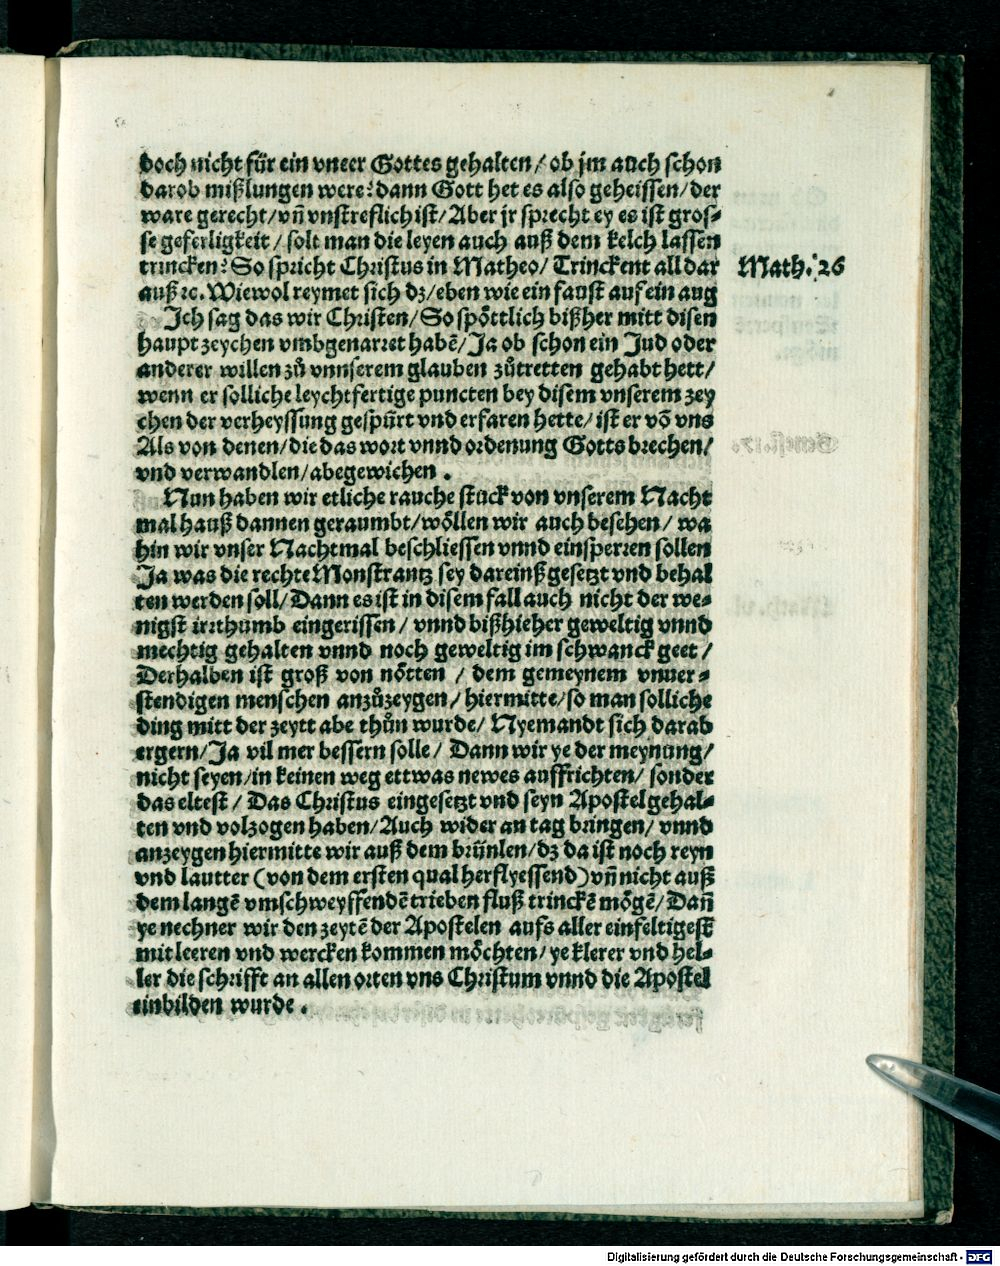 doch nicht für ein vneer Gottes gehalten / ob jm auch schon
darob mißlungen were? dann Gott het es also geheissen / der
ware gerecht / vñ vnstreflich ist / Aber jr sprecht ey es ist gros-
se geferligkeit / solt man die leyen auch auß dem kelch lassen
trincken? So spricht Christus in Matheo / Trinckent all dar
auß ꝛc. Wiewol reymet sich dz / eben wie ein faust auf ein aug
Math. 26
Ich sag das wir Christen / So spöttlich bißher mitt disen
haupt zeychen vmbgenarret habē / Ja ob schon ein Jud oder
anderer willen zů vnnserem glauben zůtretten gehabt hett /
wenn er solliche leychtfertige puncten bey disem vnserem zey
chen der verheyssung gespürt vnd erfaren hette / ist er vō vns
Als von denen / die das wort vnnd ordenung Gotts brechen /
vnd verwandlen / abegewichen .
Nun haben wir etliche rauche stuck von vnserem Nacht
mal hauß dannen geraumbt / wöllen wir auch besehen / wa
hin wir vnser Nachtmal beschliessen vnnd einsperren sollen
Ja was die rechte Monstrantz sey dareinß gesetzt vnd behal
ten werden soll / Dann es ist in disem fall auch nicht der we-
nigst irrthumb eingerissen / vnnd bißhieher geweltig vnnd
mechtig gehalten vnnd noch geweltig im schwanck geet /
Derhalben ist groß von nötten / dem gemeynem vnuer-
stendigen menschen anzůzeygen / hiermitte / so man solliche
ding mitt der zeytt abe thůn wurde / Nyemandt sich darab
ergern / Ja vil mer bessern solle / Dann wir ye der meynung /
nicht seyen / in keinen weg ettwas newes auffrichten / sonder
das eltest / Das Christus eingesetzt vnd seyn Apostel gehal-
ten vnd volzogen haben / Auch wider an tag bringen / vnnd
anzeygen hiermitte wir auß dem brünlen / dz da ist noch reyn
vnd lautter (von dem ersten qual herflyessend) vñ nicht auß
dem langē vmschweyffendē trieben fluß trinckē mögē / Dañ
ye nechner wir den zeytē der Apostelen aufs aller einfeltigest
mit leeren vnd wercken kommen möchten / ye klerer vnd hel-
ler die schrifft an allen orten vns Christum vnnd die Apostel
einbilden wurde .
Digitalisierung gefördert durch die Deutsche Forschungsgemeinschaft - DFG